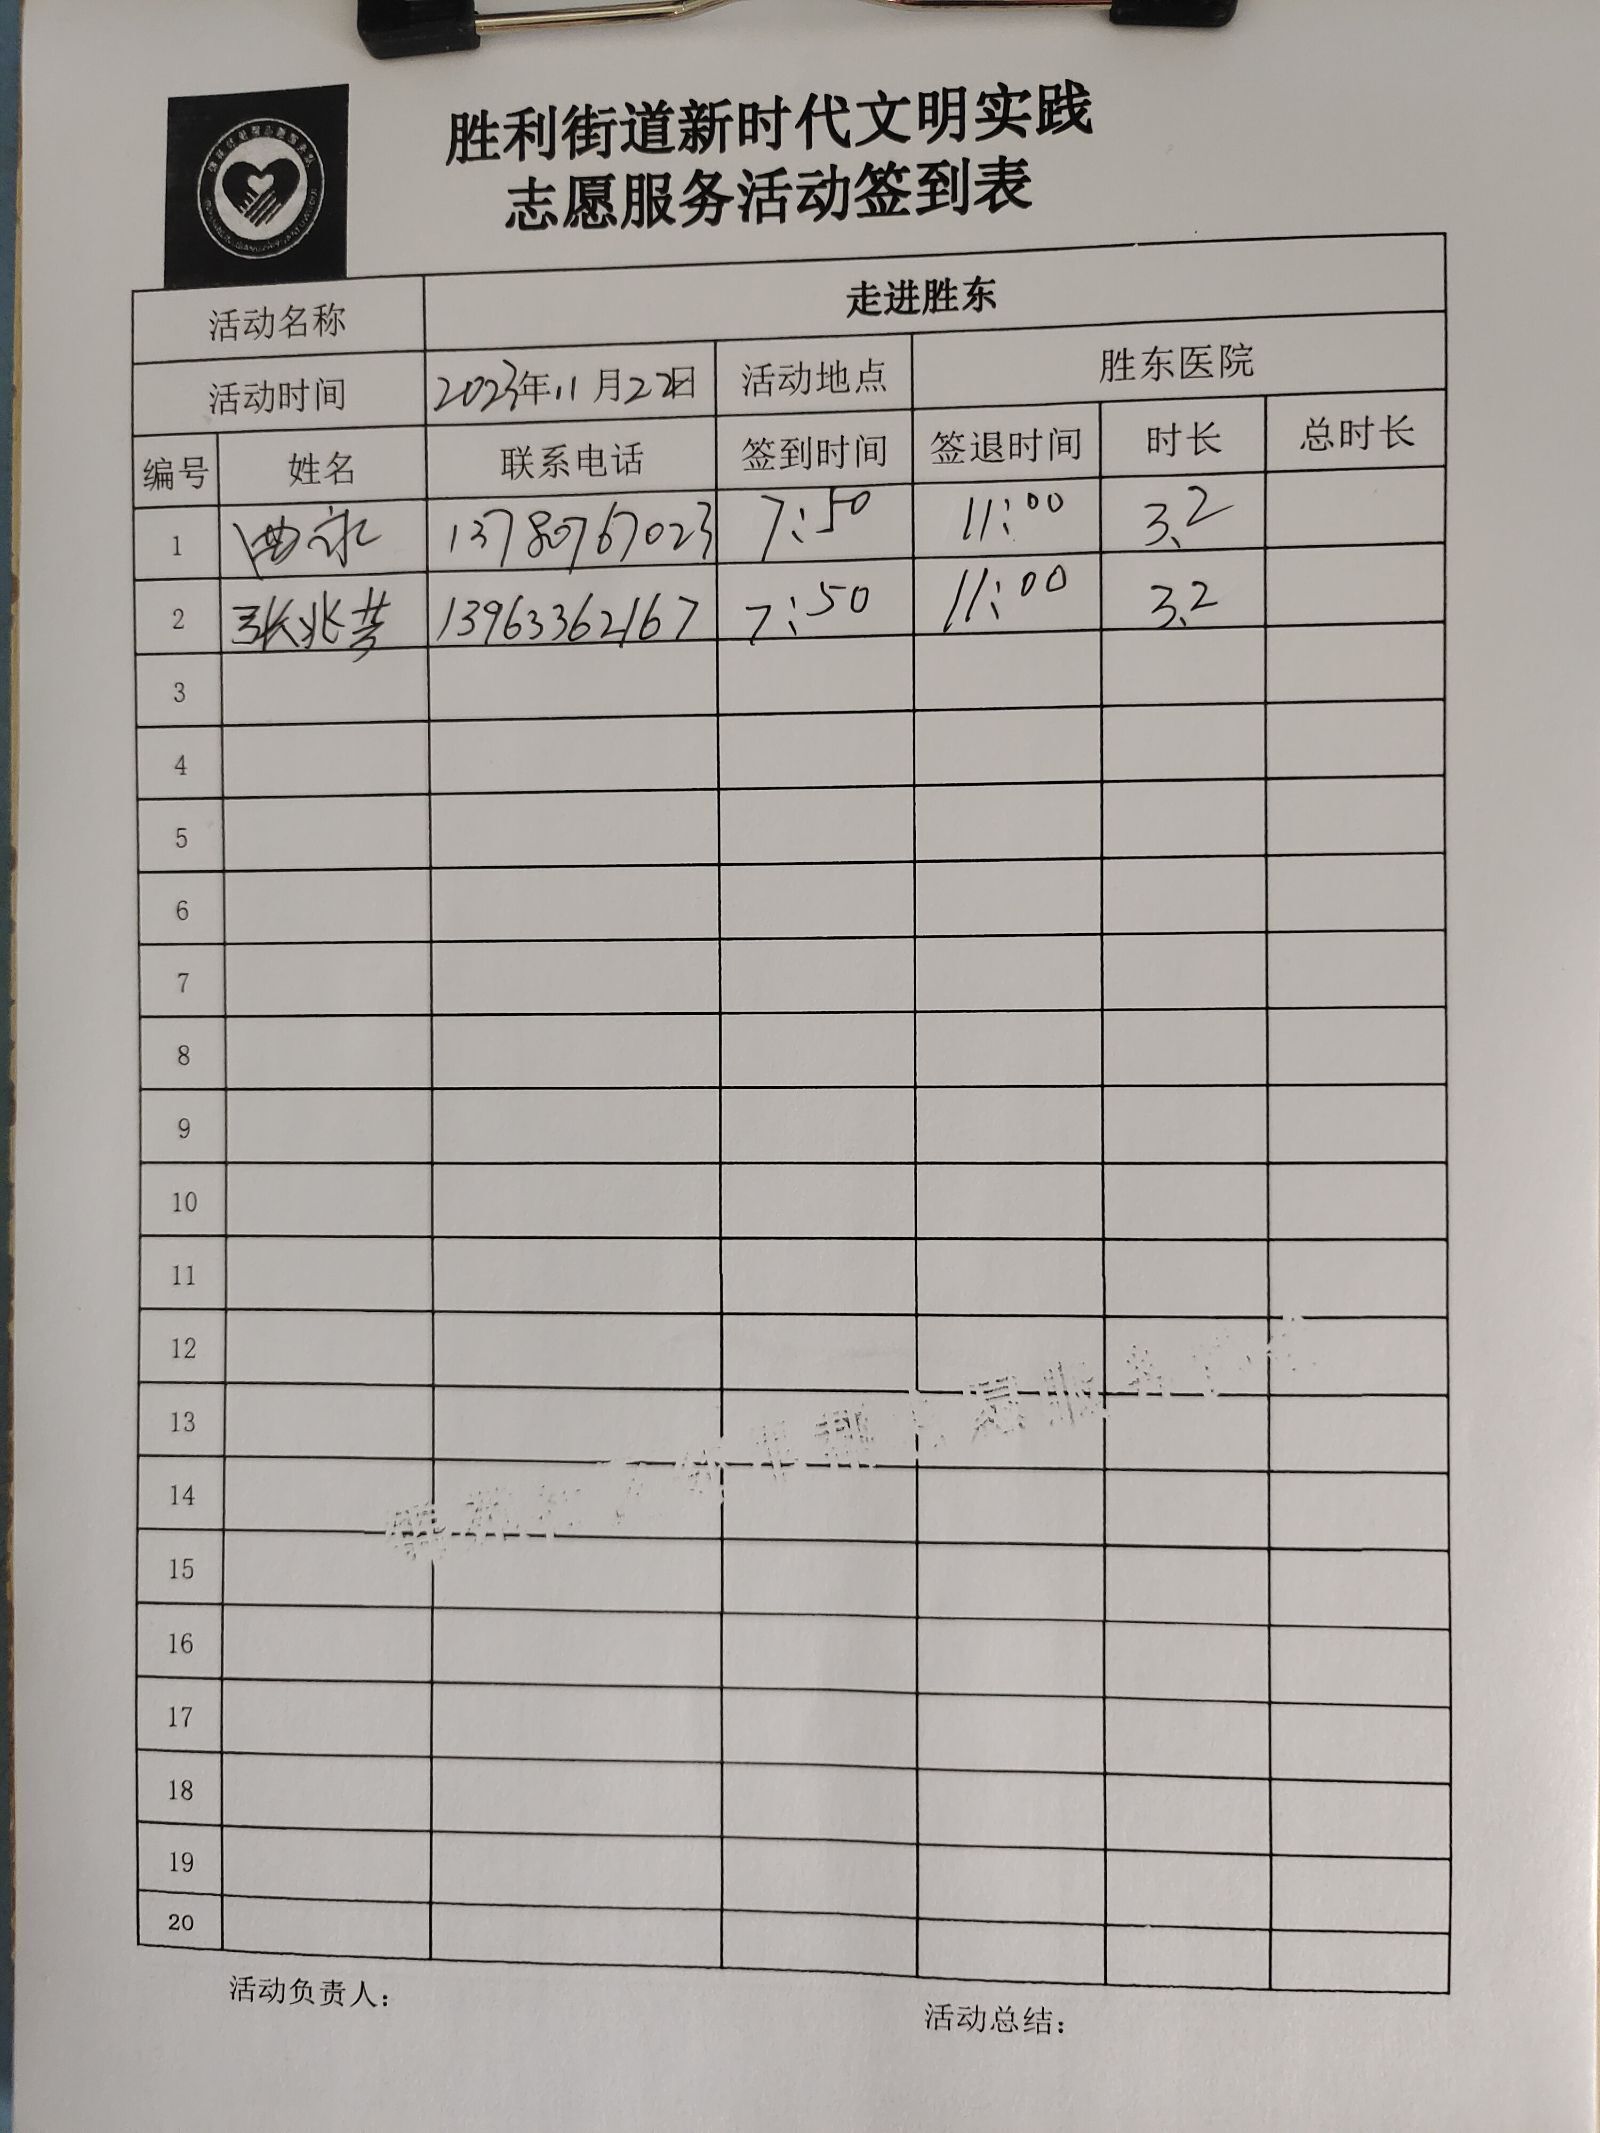 胜利街道新时代文明实践
志愿服务活动签到表
活动名称 走进胜东
活动时间 2023年11月22日 活动地点 胜东医院
编号 姓名 联系电话 签到时间 签退时间 时长 总时长
1 13780767023 7:50 11:00 3.2
2 张兆芳 13963362167 7:50 11:00 3.2
3
4
5
6
7
8
9
10
11
12
13
14
15
16
17
18
19
20
活动负责人: 活动总结: